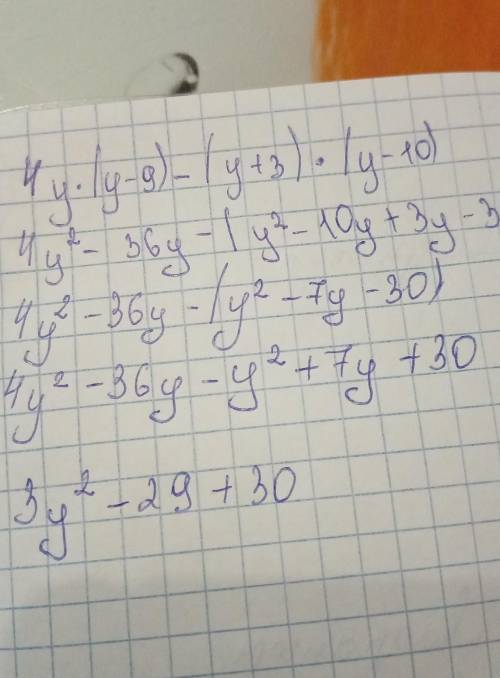 4y·(y-9)-(y+3)·(y-10)
4y²-36y-(y²-10y+3y-3
4y²-36y-(y²-7y-30)
4y²-36y-y²+7y+30
3y²-29+30